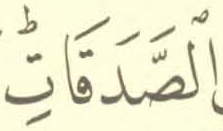 الصَّدَقَاتِؕ